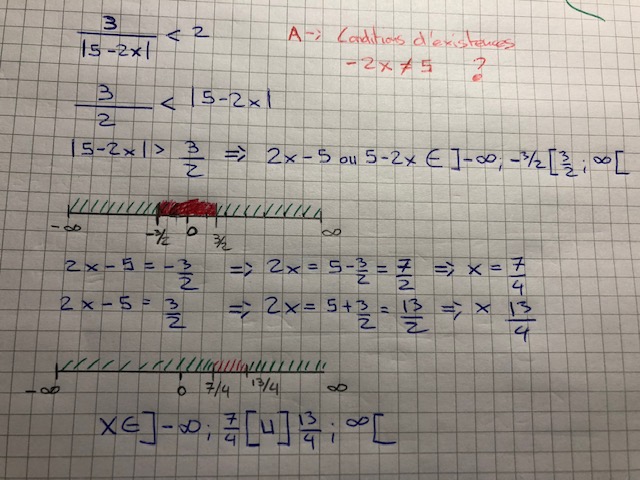 3/|5-2x| < 2
A→ Conditions d'existences
-2x ≠ 5 ?
3/2 < |5-2x|
|5-2x| > 3/2 ⇒ 2x-5 ou 5-2x ∈ ]-∞; -3/2[ 3/2 ; ∞[
-∞ -3/2 0 3/2 ∞
2x-5 = -3/2 ⇒ 2x = 5-3/2 = 7/2 ⇒ x = 7/4
2x-5 = 3/2 ⇒ 2x = 5+3/2 = 13/2 ⇒ x 13/4
-∞ 0 7/4 13/4 ∞
X∈]-∞; 7/4[ ∪ ]13/4 ; ∞[